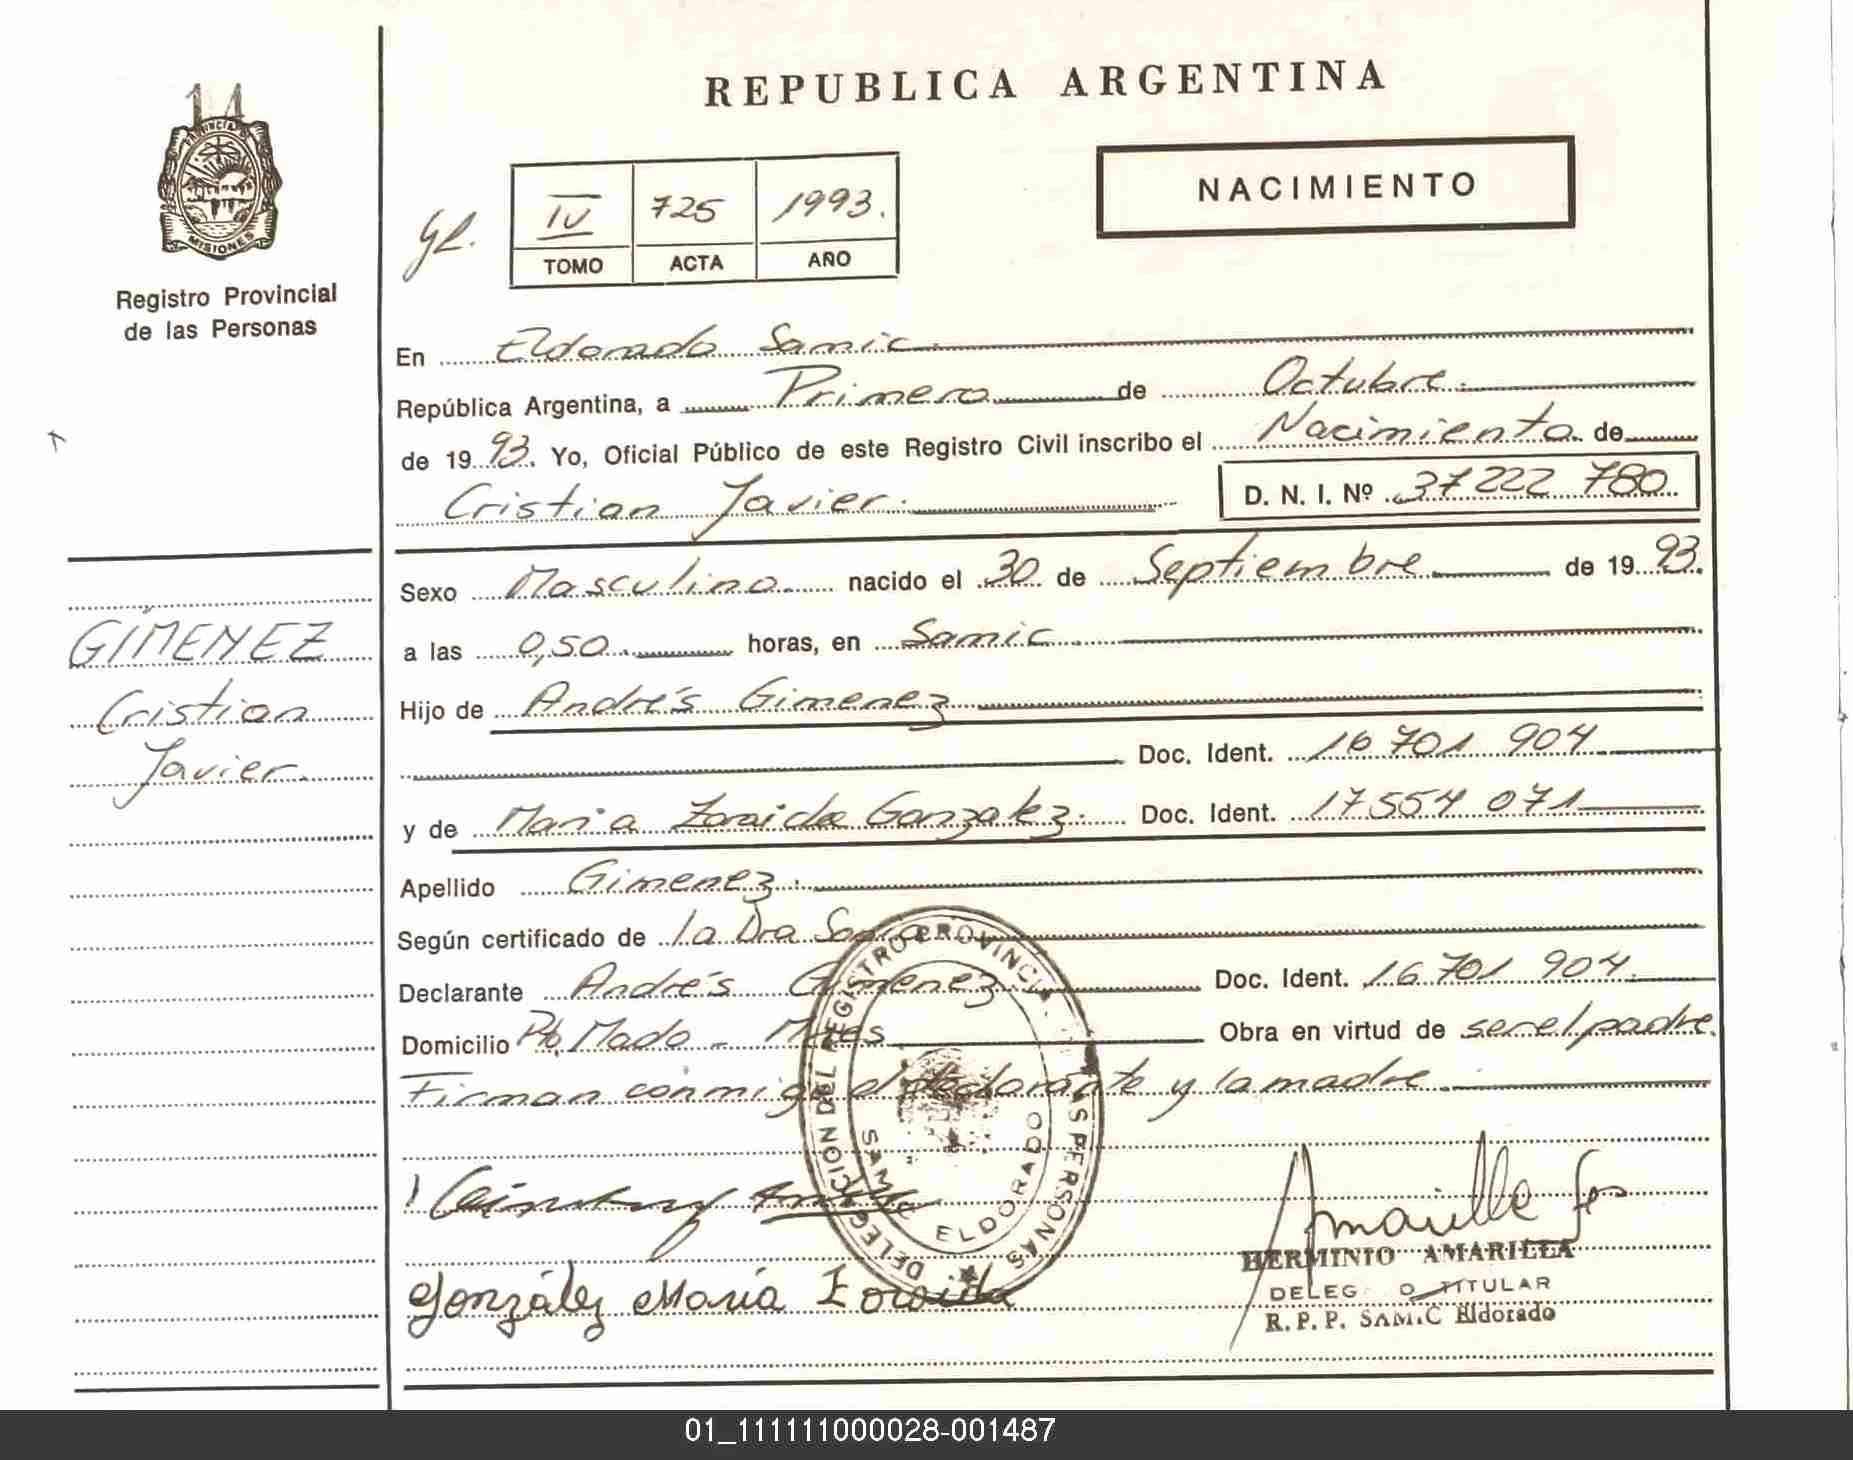 REPUBLICA ARGENTINA
14
PROVINCIA DE
MISIONES
Registro Provincial
de las Personas
NACIMIENTO
IV 725 1993.
TOMO ACTA AÑO
En Eldorado Samic
República Argentina, a Primero de Octubre
de 1993. Yo, Oficial Público de este Registro Civil inscribo el Nacimiento de
Cristian Javier. D. N. I. Nº 37 222 780
Sexo Masculino nacido el 30 de Septiembre de 1993.
a las 0,50 horas, en Samic
Hijo de Andrés Gimenez
Doc. Ident. 16 701 904
y de Maria Zoraida Gonzalez. Doc. Ident. 17 554 071
Apellido Gimenez
Según certificado de la Dra
Declarante Andrés Gimenez Doc. Ident. 16 701 904
Domicilio Pto Mado - Mnes Obra en virtud de ser el padre.
Firman conmigo el declarante y la madre
GIMENEZ
Cristian
Javier
DELEGACION DEL REGISTRO PROVINCIAL LAS PERSONAS
SAMIC ELDORADO
González María Zoraida
Amarilla
HERMINIO AMARILLA
DELEG O TITULAR
R. P. P. SAM.C Eldorado
01_111111000028-001487